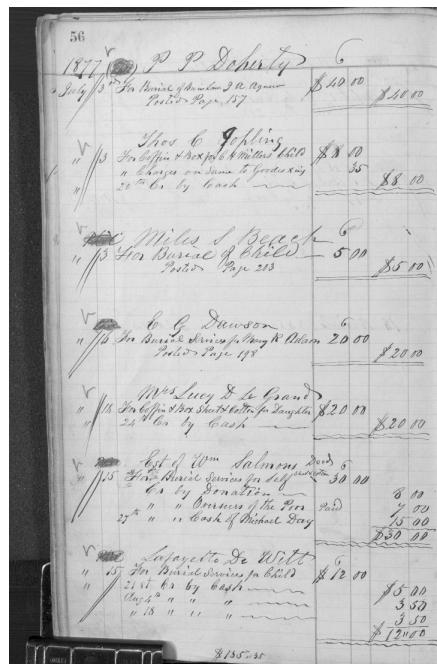 56
1877 P P Doherty 6
July 3rd For Burial of Son Law J A Agnew $40 00
Posted Page 157 $40 00
Thos C Jopling
" 3 For Coffin & Box for C H Millers Child $8 00
" " Charges on Same to Goodes x ing 35
" 20th Cr by Cash $8 00
Miles S Beach 6
" 3 For Burial of Child 5 00
Posted Page 203 $5 00
E G Dawson 6
" 6 For Burial Servises for Mary R Adams 20 00
Posted Page 198 $20 00
Mrs Lucy D Le Grand
" 18 For Coffin & Box Shots Cotton for Daughter $20 00
" 24 Cr by Cash $20 00
Est of Wm Salmons Decd 6
" 15 For Burial Services for Self 30 00
Cr by Donation 8 00
" " Overseers of the Poor Paid 7 00
27th " " Cash of Michael Day 15 00
$30 00
Lafayette De Witt 6
" 15 For Burial Services for Child $12 00
" 21st Cr by Cash $5 00
Aug 4th " " " 3 50
" 18 " " " 3 50
$12 00
$135.35